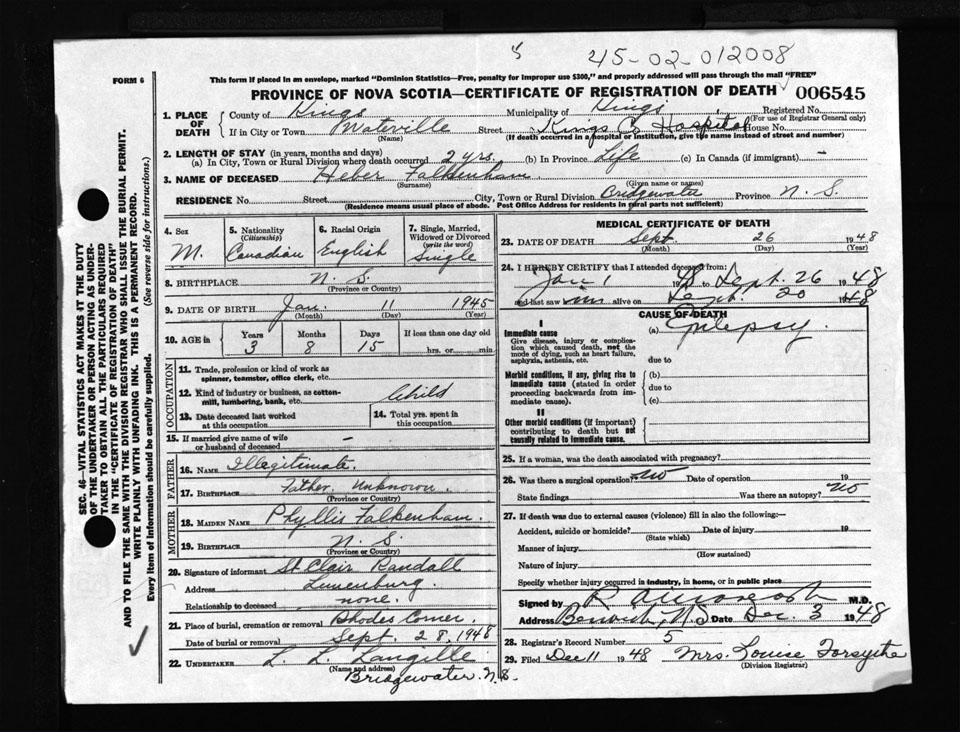 45-02-012008
FORM 6
This form if placed in an envelope, marked "Dominion Statistics—Free, penalty for improper use $300," and properly addressed will pass through the mail "FREE"
PROVINCE OF NOVA SCOTIA—CERTIFICATE OF REGISTRATION OF DEATH 006545
1. PLACE OF DEATH
County of Kings Municipality of Kings Registered No.
(For use of Registrar General only)
If in City or Town Watville Street Kings Co Hospital House No.
(Name) (If death occurred in a hospital or institution, give the name instead of street and number)
2. LENGTH OF STAY (in years, months and days)
(a) In City, Town or Rural Division where death occurred 2 yrs. (b) In Province Life (c) In Canada (if immigrant) —
3. NAME OF DECEASED Heber Falkenham
(Surname) (Given name or names)
RESIDENCE No. Street City, Town or Rural Division Bridgewater Province N. S.
(Residence means usual place of abode. Post Office Address for residents in rural parts not sufficient)
4. Sex M.
5. Nationality (Citizenship) Canadian
6. Racial Origin English
7. Single, Married, Widowed or Divorced (write the word) Single
8. BIRTHPLACE N. S.
(Province or Country)
9. DATE OF BIRTH Jan. 11 1945
(Month) (Day) (Year)
10. AGE in Years Months Days If less than one day old
3 8 15 hrs. or min.
OCCUPATION
11. Trade, profession or kind of work as spinner, teamster, office clerk, etc.
12. Kind of industry or business, as cotton-mill, lumbering, bank, etc. Child
13. Date deceased last worked at this occupation
14. Total yrs. spent in this occupation
15. If married give name of wife or husband of deceased —
FATHER
16. Name Illegitimate.
17. Birthplace Father Unknown.
(Province or Country)
MOTHER
18. Maiden Name Phyllis Falkenham.
19. Birthplace N. S.
(Province or Country)
20. Signature of informant St Clair Randall
Address Lunenburg.
Relationship to deceased none.
21. Place of burial, cremation or removal Rhodes Corner.
Date of burial or removal Sept. 28, 1948
22. UNDERTAKER L. L. Langille
(Name and address)
Bridgewater. N.S.
MEDICAL CERTIFICATE OF DEATH
23. DATE OF DEATH Sept. 26 1948
(Month) (Day) (Year)
24. I HEREBY CERTIFY that I attended deceased from:
Jan 1 1948 to Sept. 26 1948
and last saw him alive on Sept. 20 1948
CAUSE OF DEATH
I
Immediate cause (a) Epilepsy.
Give disease, injury or complication which caused death, not the mode of dying, such as heart failure, asphyxia, asthenia, etc.
due to
Morbid conditions, if any, giving rise to immediate cause (stated in order proceeding backwards from immediate cause).
(b)
due to
(c)
II
Other morbid conditions (if important) contributing to death but not causally related to immediate cause.
25. If a woman, was the death associated with pregnancy?
26. Was there a surgical operation? No Date of operation 19
State findings Was there an autopsy? No
27. If death was due to external causes (violence) fill in also the following:—
Accident, suicide or homicide? Date of injury 19
(State which)
Manner of injury
(How sustained)
Nature of injury
Specify whether injury occurred in industry, in home, or in public place
Signed by M.D.
Address Date Dec. 3 1948
28. Registrar's Record Number 5
29. Filed Dec 11 1948 Mrs. Louise Forsythe
(Division Registrar)
SEC. 46—VITAL STATISTICS ACT MAKES IT THE DUTY
OF THE UNDERTAKER OR PERSON ACTING AS UNDER-
TAKER TO OBTAIN ALL THE PARTICULARS REQUIRED
IN THE "CERTIFICATE OF REGISTRATION OF DEATH"
AND TO FILE THE SAME WITH THE DIVISION REGISTRAR WHO SHALL ISSUE THE BURIAL PERMIT.
WRITE PLAINLY WITH UNFADING INK. THIS IS A PERMANENT RECORD.
Every item of information should be carefully supplied. (See reverse side for instructions.)